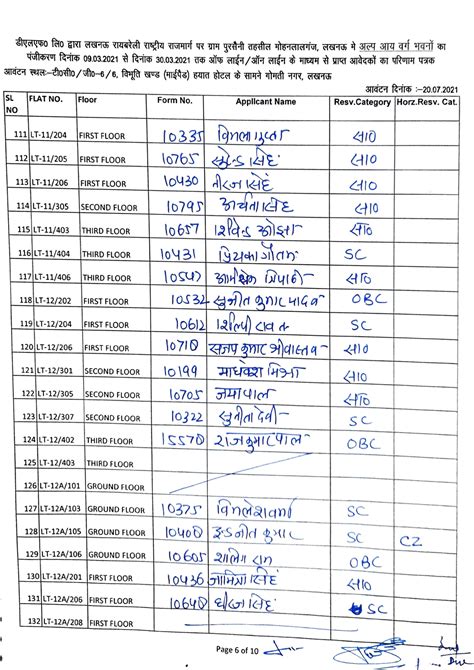 डीएलएफ0 लि0 द्वारा लखनऊ रायबरेली राष्ट्रीय राजमार्ग पर ग्राम पुरसैनी तहसील मोहनलालगंज, लखनऊ मे अल्प आय वर्ग भवनों का
पंजीकरण दिनांक 09.03.2021 से दिनांक 30.03.2021 तक ऑफ लाईन/ऑन लाईन के माध्यम से प्राप्त आवेदकों का परिणाम पत्रक
आवंटन स्थल:-टी0सी0/जी0-6/6, विभूति खण्ड (माईपैड) हयात होटल के सामने गोमती नगर, लखनऊ
आवंटन दिनांक :-20.07.2021
SL NO FLAT NO. Floor Form No. Applicant Name Resv.Category Horz.Resv. Cat.
111 LT-11/204 FIRST FLOOR 10335 विमला गुप्ता सा0
112 LT-11/205 FIRST FLOOR 10765 सुरेन्द्र सिंह सा0
113 LT-11/206 FIRST FLOOR 10430 नीरज सिंह सा0
114 LT-11/305 SECOND FLOOR 10795 अर्चना सिंह सा0
115 LT-11/403 THIRD FLOOR 10657 शिवेन्द्र ओझा सा0
116 LT-11/404 THIRD FLOOR 10431 प्रियंका गौतम SC
117 LT-11/406 THIRD FLOOR 10547 त्रिपाठी सा0
118 LT-12/202 FIRST FLOOR 10532 सुनीत कुमार यादव OBC
119 LT-12/204 FIRST FLOOR 10612 शिल्पी रावत SC
120 LT-12/206 FIRST FLOOR 10710 संजय कुमार श्रीवास्तव सा0
121 LT-12/301 SECOND FLOOR 10199 माधवेश मिश्रा सा0
122 LT-12/305 SECOND FLOOR 10705 जयपाल सा0
123 LT-12/307 SECOND FLOOR 10322 सुनीता देवी SC
124 LT-12/402 THIRD FLOOR 15570 राजकुमार पाल OBC
125 LT-12/403 THIRD FLOOR
126 LT-12A/101 GROUND FLOOR
127 LT-12A/103 GROUND FLOOR 10375 विमलेश वर्मा SC
128 LT-12A/105 GROUND FLOOR 10400 इन्द्रजीत कुमार SC CZ
129 LT-12A/106 GROUND FLOOR 10605 शालिग राम OBC
130 LT-12A/201 FIRST FLOOR 10436 सिंह सा0
131 LT-12A/206 FIRST FLOOR 10640 धीरज सिंह SC
132 LT-12A/208 FIRST FLOOR
Page 6 of 10